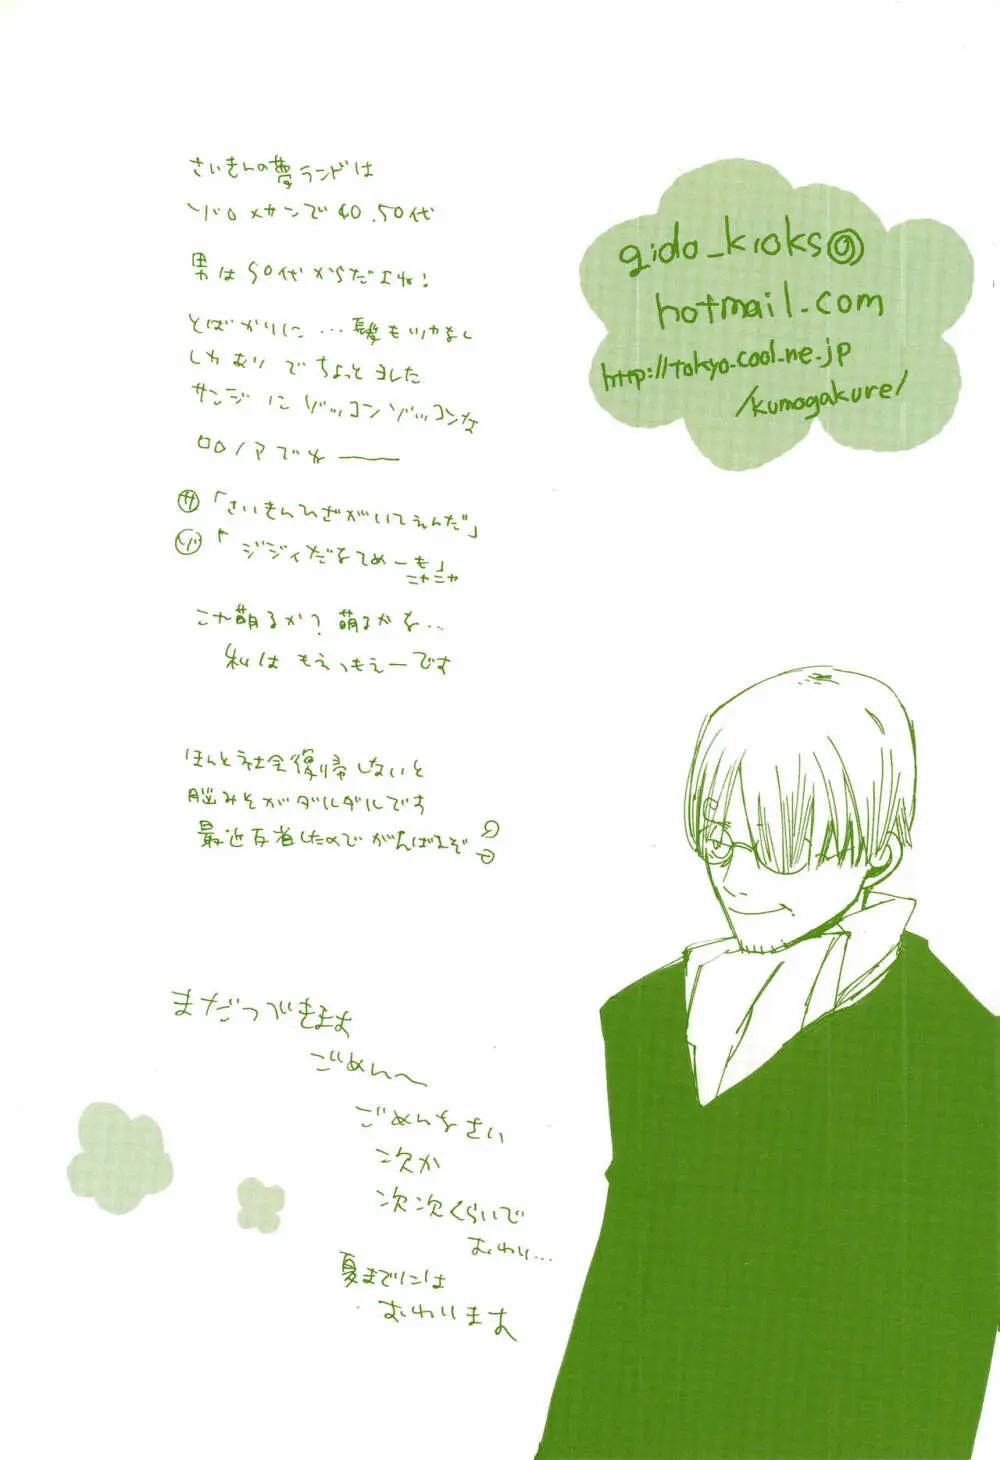 さいきんの夢ランドは
ゾロ×サンで40.50代
男は50代からだよね!
とばかりに…髪もツヤなし
しわありでちょっとヨレた
サンジにゾッコンゾッコンな
ロロノアでねー
サ「さいきんひざがいてえんだ」
ゾ「ジジィだなてめーも」
ニヤニヤ
こや萌るか?萌るかな…
私はもえっもえーです
ほんと社会復帰しないと
脳みそがダルダルです
最近反省したのでがんばるぞ
まだつづきます
ごめん〜
ごめんなさい
次か
次次くらいで
おわり…
夏までには
おわります
gido_kioks@
hotmail.com
http://tokyo.cool.ne.jp
/kumogakure/